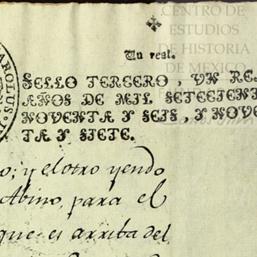 CENTRO DE
ESTUDIOS
DE HISTORIA
DE MEXICO
CAROLUS
Un real.
SELLO TERCERO, VN RE
AÑOS DE MIL SETECIEN
NOVENTA Y SEIS, Y NOVE
TA Y SIETE.
o; y el otro yendo
Abino, para el
que es arriba del